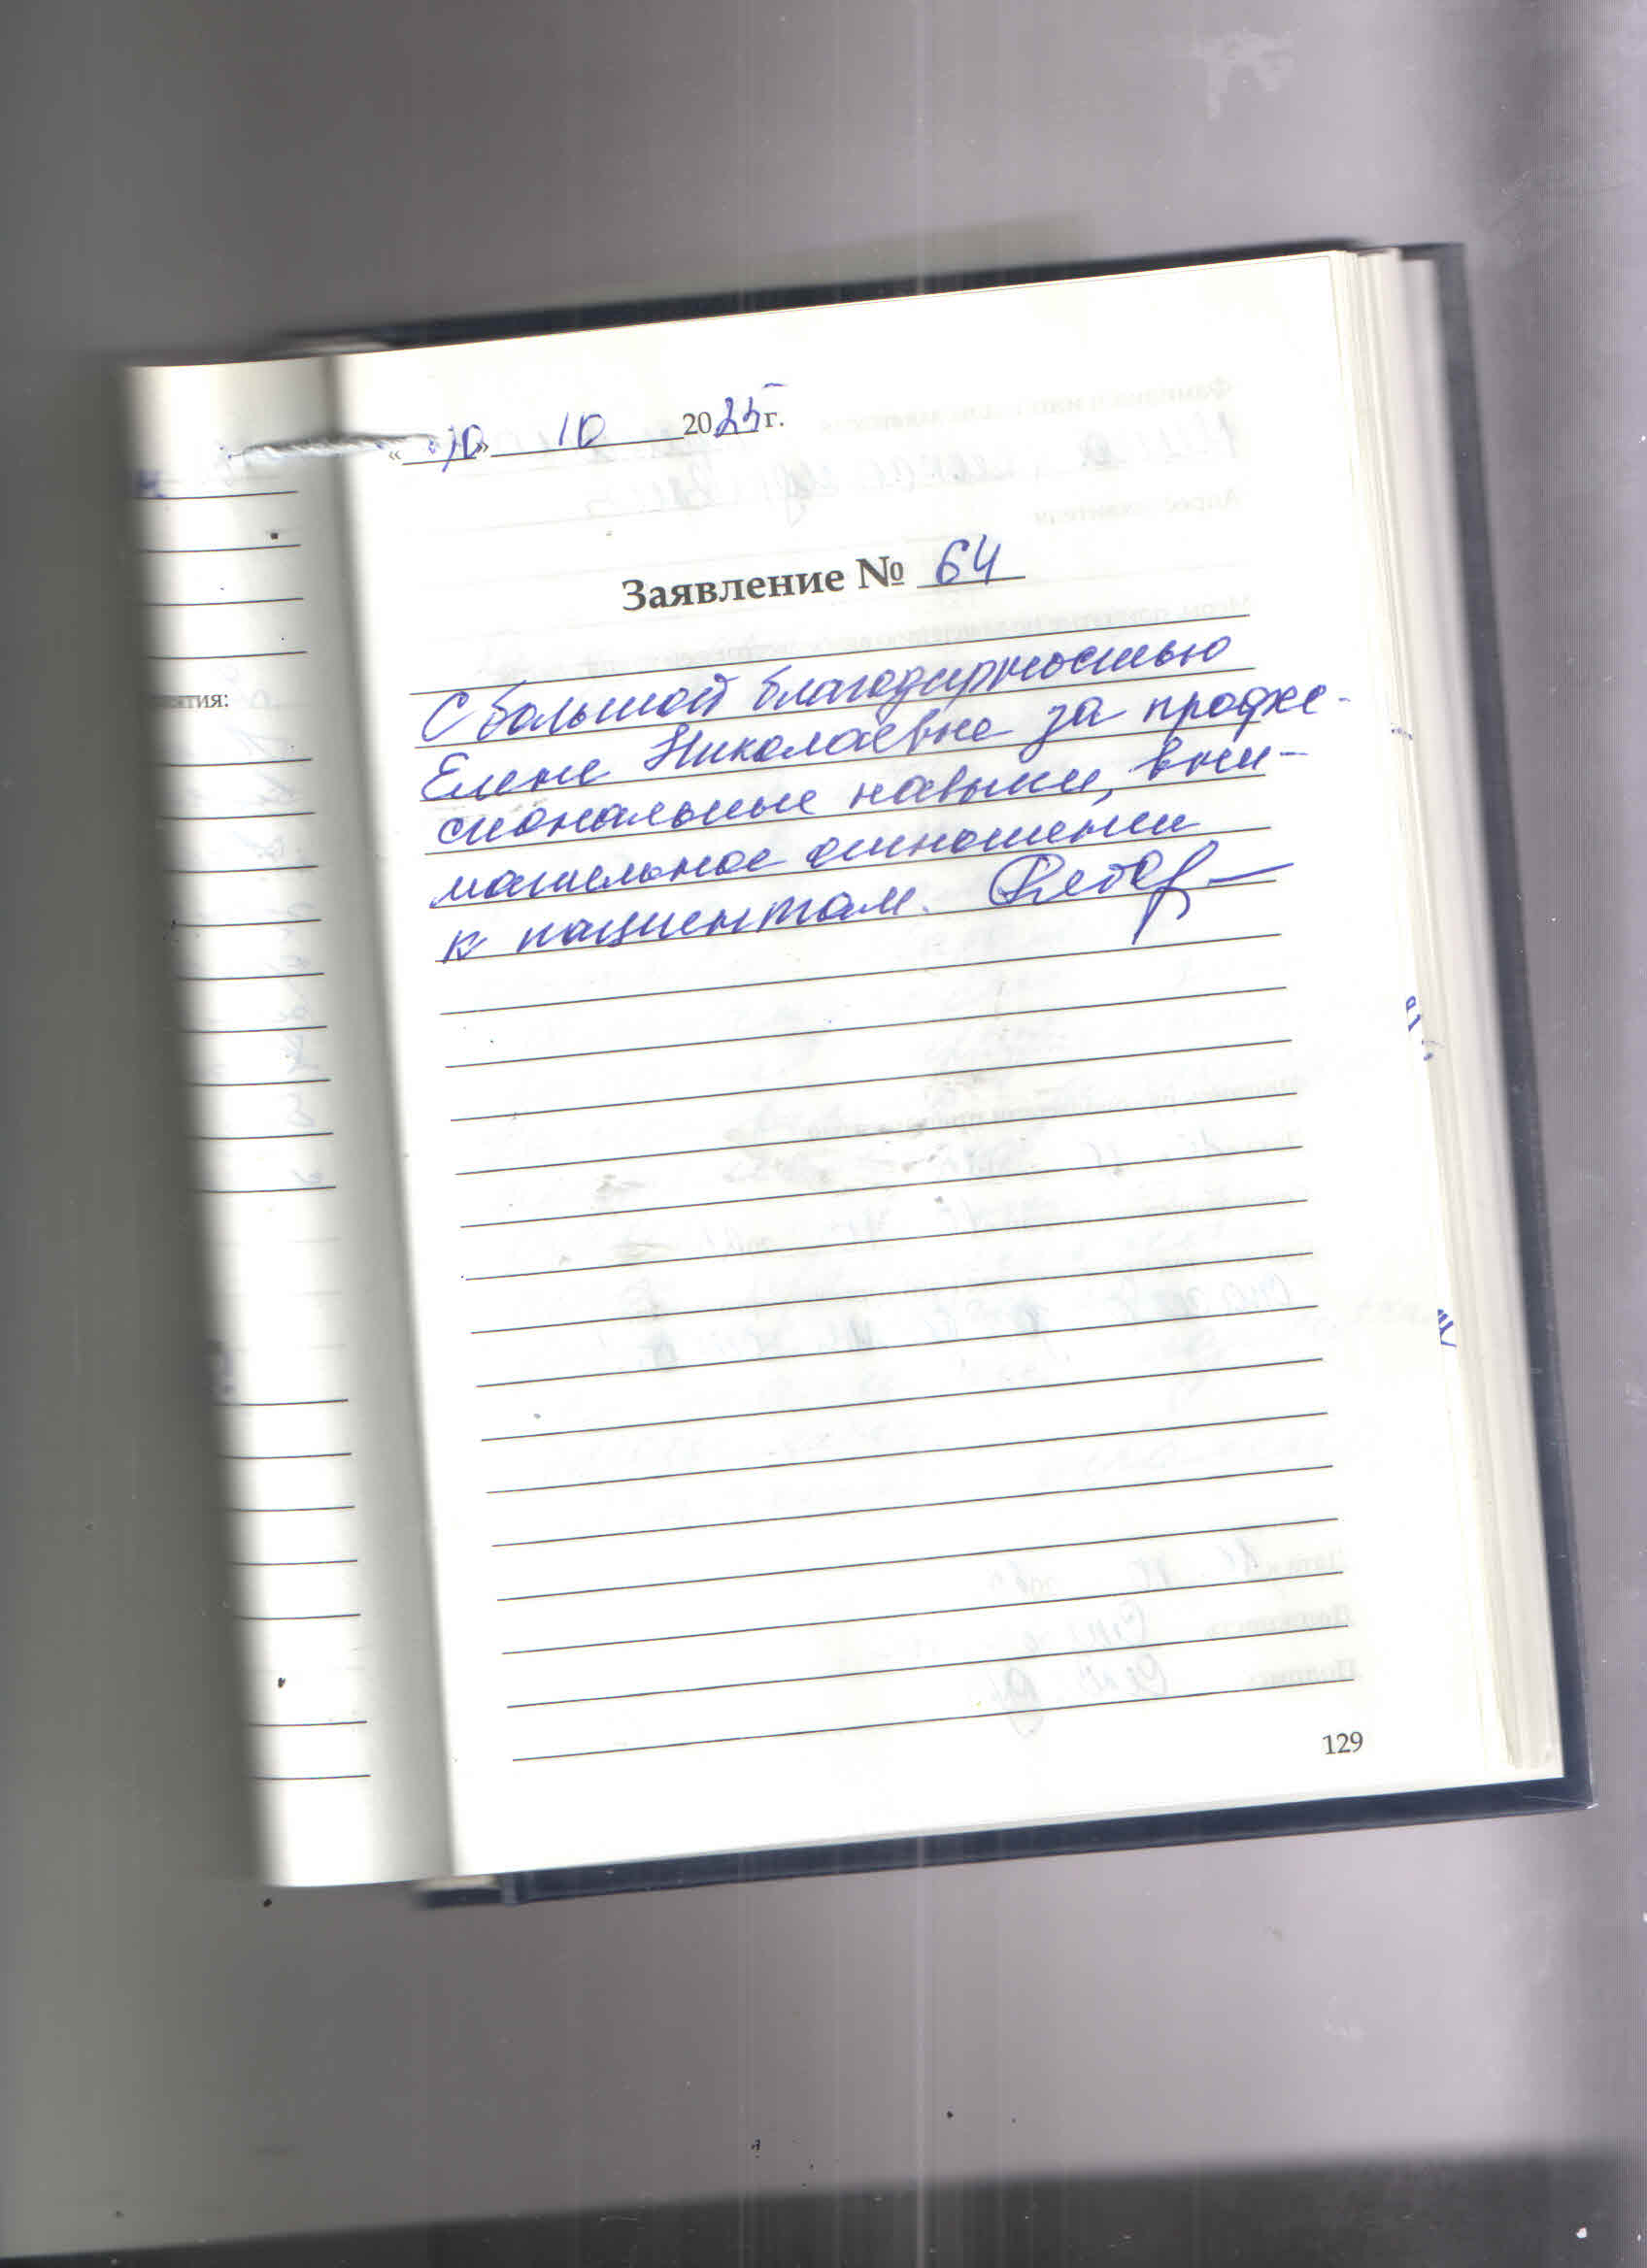 «10» 10 2025 г.
Заявление № 64
С большой благодарностью
Елене Николаевне за профес-
сиональные навыки, вни-
мательное отношении
к пациентам.
ятия:
129